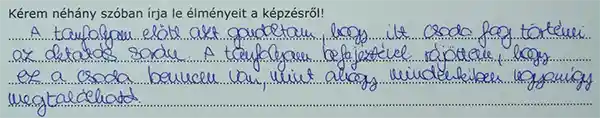 Kérem néhány szóban írja le élményeit a képzésről!
A tanfolyam előtt azt gondoltam, hogy itt csoda fog történni
az oktatás során. A tanfolyam befejeztével rájöttem, hogy
ez a csoda bennem van, mint ahogy mindenkiben ugyanúgy
megtalálható.